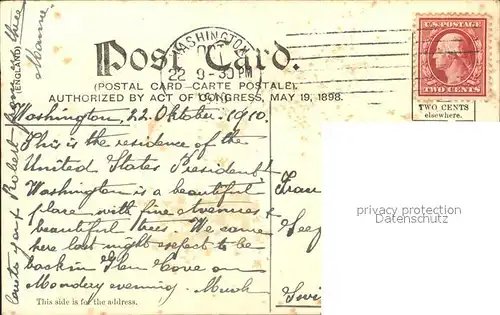 WASHINGTON
OCT
22 9-30 PM
U.S. POSTAGE
TWO CENTS
(ENGLAND)
Post Card.
(POSTAL CARD—CARTE POSTALE).
AUTHORIZED BY ACT OF CONGRESS, MAY 19, 1898.
TWO CENTS
elsewhere.
Washington, 22. Oktober. 1910.
This is the residence of the
United States President.
Washington is a beautiful
place with five avenues &
beautiful trees. We came
here last night expect to be
back in Glen Cove on
Monday evening. Much
This side is for the address.
Robert from
three
privacy protection
Datenschutz